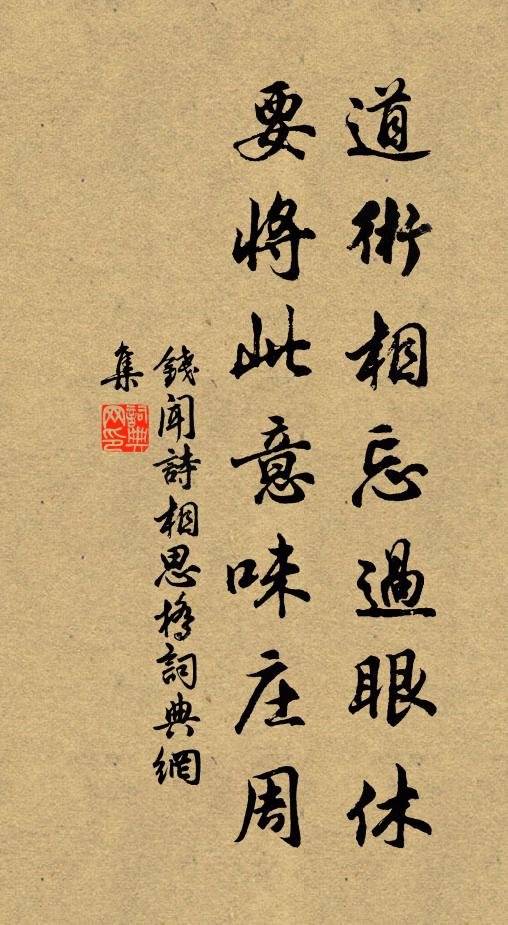 道術相忘過眼休
要將此意味庄周
錢聞詩相思橋詞典網
集
詞典
网印